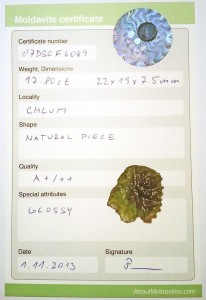 Moldavite certificate
Certificate number
07DSCF6049
Weight, Dimensions
17.80ct 22x19x7.5mm
Locality
CHLUM
Shape
NATURAL PIECE
Quality
A+/++
Special attributes
GLOSSY
Date
Signature:
1.11.2013
AboutMoldavites.com